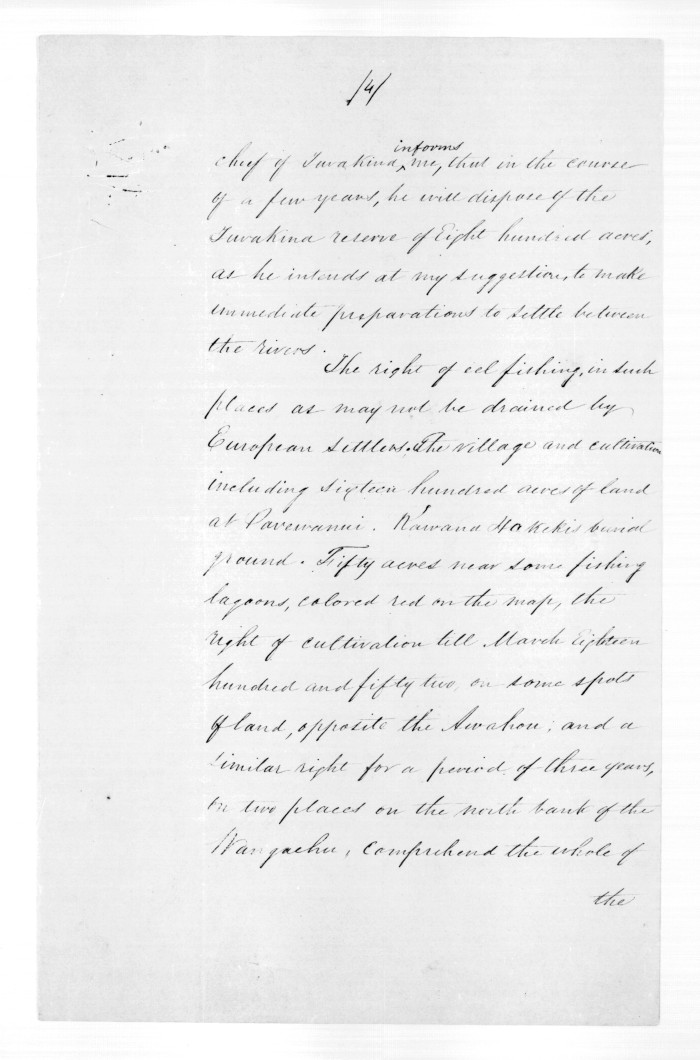 /4/
informs
chief of Turakina, me, that in the course
of a few years, he will dispose of the
Turakina reserve of Eight hundred acres,
as he intends at my suggestion, to make
immediate preparations to settle between
the rivers.
The right of eel fishing, in such
places as may not be drained by
European settlers. The village and cultivation
including sixteen hundred acres of land
at Parewanui. Kawana Hakeke's burial
ground. Fifty acres near some fishing
lagoons, colored red on the map, the
right of cultivation till March Eighteen
hundred and fifty two, on some spots
of land, opposite the Awahou; and a
similar right for a period of three years,
on two places on the north bank of the
Wangaehu, comprehend the whole of
the